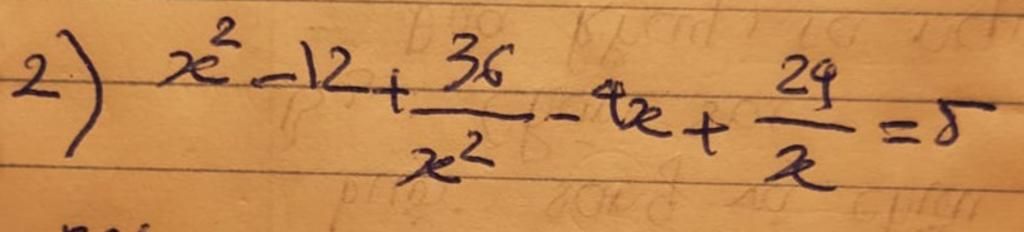 2) x² - 12 + 36/x² - 4x + 24/x = 5